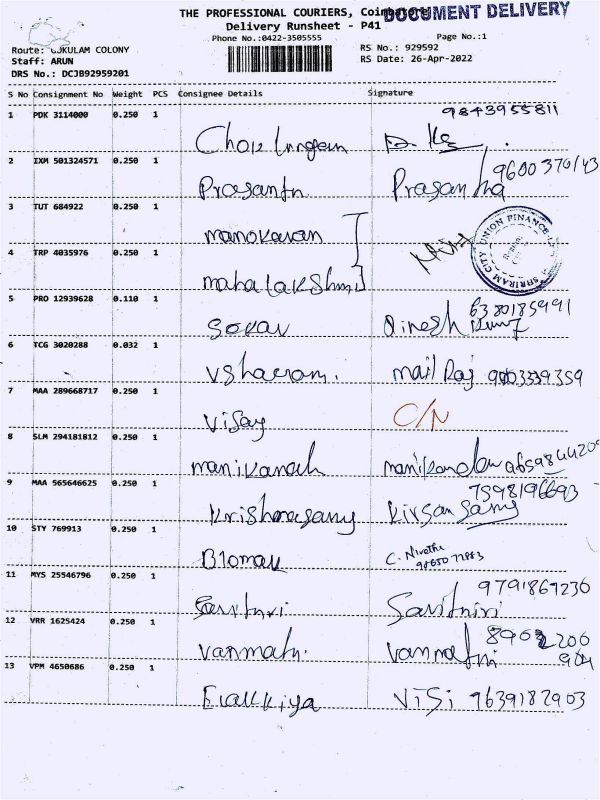 THE PROFESSIONAL COURIERS, Coimbatore
DOCUMENT DELIVERY
Delivery Runsheet - P41
Phone No.:0422-3505555
Page No.:1
Route: GOKULAM COLONY
RS No.: 929592
Staff: ARUN
RS Date: 26-Apr-2022
DRS No.: DCJB92959201
S No Consignment No Weight PCS Consignee Details Signature
1 PDK 3114000 0.250 1 9843955811
2 IXM 501324571 0.250 1 Prasanth Prasantha
3 TUT 684922 0.250 1 manokaran
UNION FINANCE SHRIRAM CITY
4 TRP 4035976 0.250 1 mahalakshmi
5 PRO 12939628 0.110 1 Sekar Dinesh Kumar 6380185991
6 TCG 3020288 0.032 1 mail Raj 9003339359
7 MAA 289668717 0.250 1 Vijay C/N
8 SLM 294181812 0.250 1 manikandan
9 MAA 565646625 0.250 1 Krishnasamy Kirsan Samy 7598196693
10 STY 769913 0.250 1 C. Nivetha
11 MYS 25546796 0.250 1 Savitniri 9791867236
12 VRR 1625424 0.250 1 vanmathi
13 VPM 4650686 0.250 1 Elakkiya ViSi 9639182903